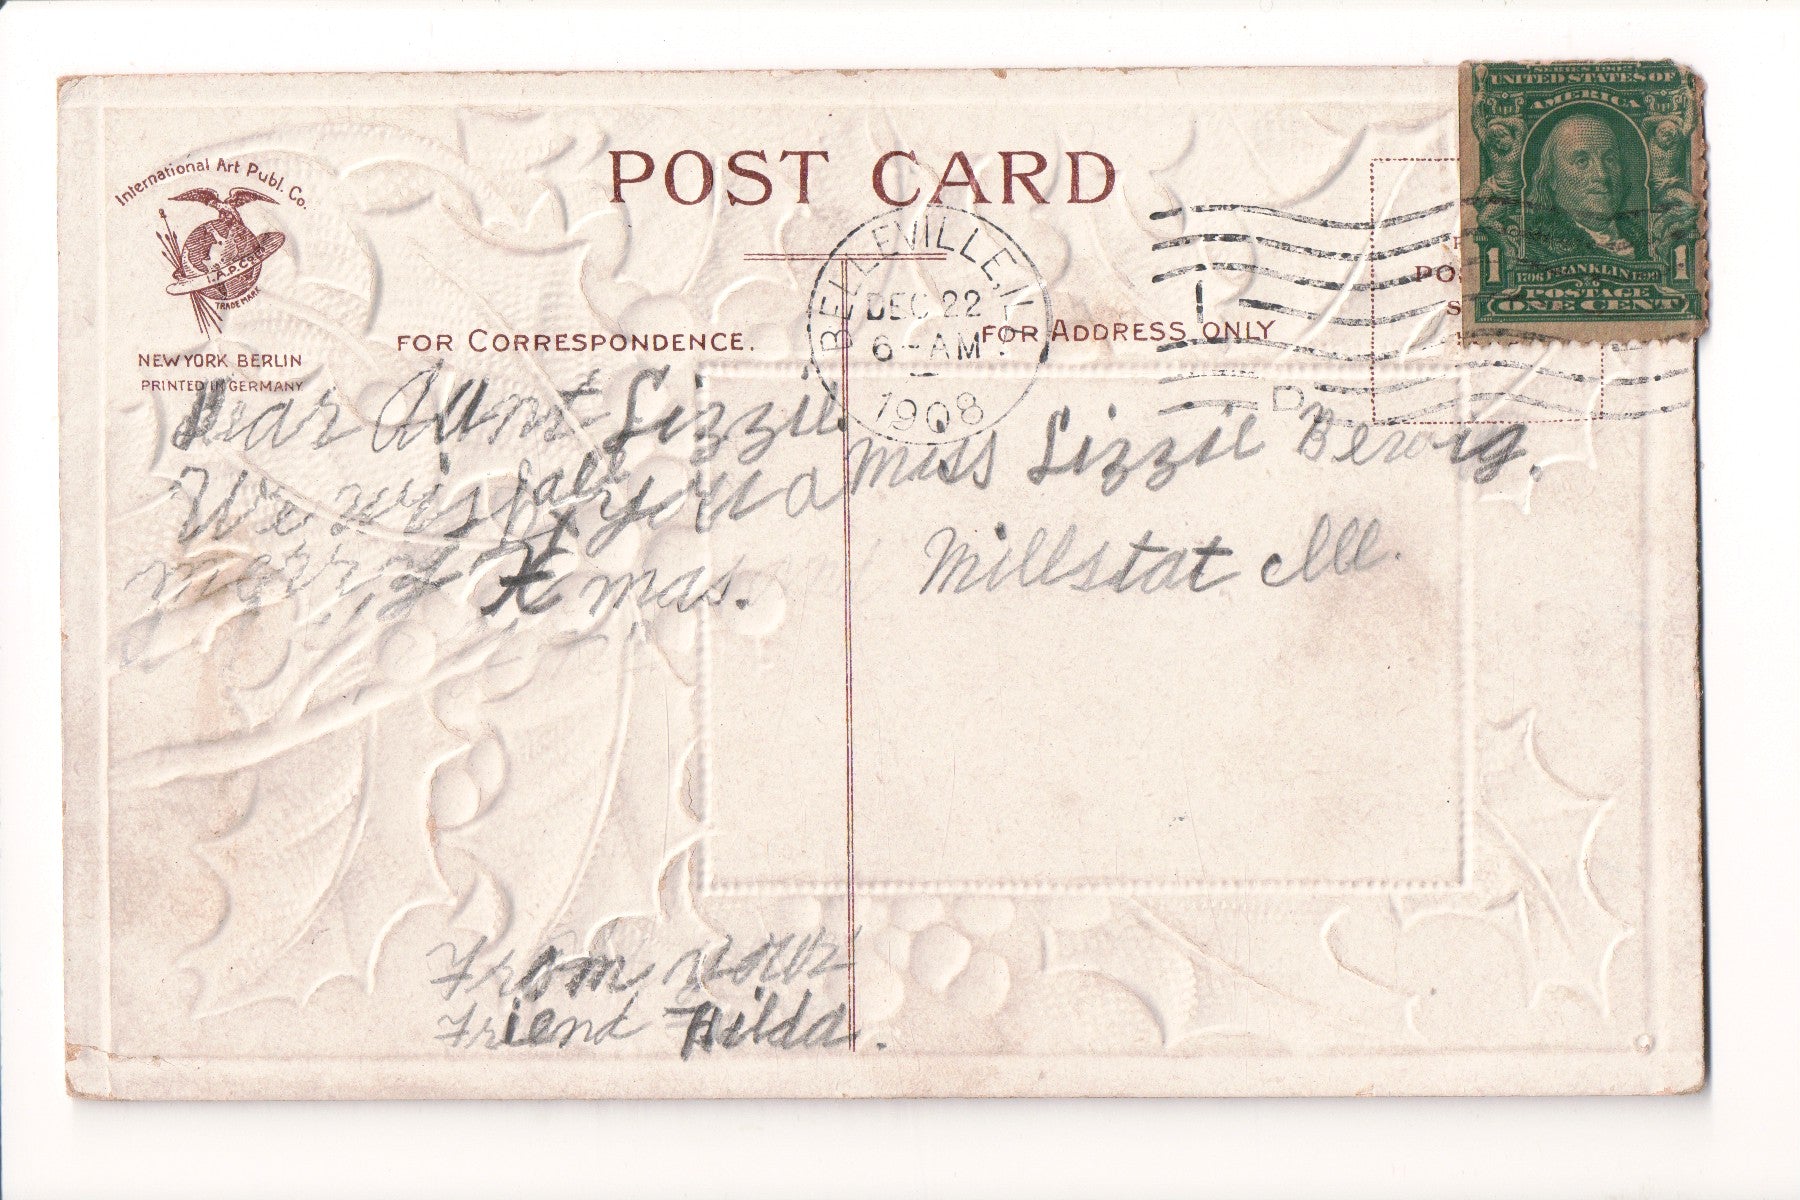 International Art Publ. Co.
I.A.P.Co.
TRADE MARK
NEW YORK BERLIN
PRINTED IN GERMANY
POST CARD
FOR CORRESPONDENCE.
FOR ADDRESS ONLY
BELLEVILLE, ILL.
DEC 22
6 - AM
1908
1
D
SERIES 1902
UNITED STATES OF
AMERICA
1706 FRANKLIN 1790
1 1
POSTAGE
ONE CENT
Dear Aunt Lizzie.
We wish all you a
merry Xmas.
From your
Friend Hilda.
Miss Lizzie Berwig.
Millstat Ill.